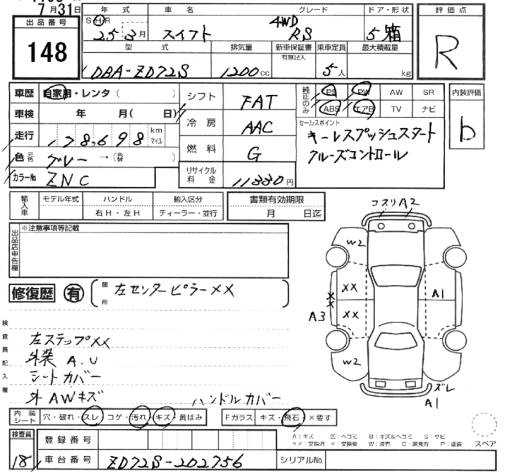 7月31日
出品番号
148
年 式
車 名
グレード
ドア・形状
評価点
25年3月
スイフト
4WD
RS
5 箱
R
型 式
排気量
新車保証書
有限記入
乗車定員
最大積載量
DBA-ZD72S
1200cc
5人
kg
車歴
自家用・レンタ( )
シフト
FAT
純正のみ
PS PW AW SR
ABS エアB TV ナビ
内装評価
b
車検
年 月( 日)
冷房
AAC
セールスポイント
キーレスプッシュスタート
クルーズコントロール
走行
178,698
km
マイル
色
グレー →( )
燃料
G
カラーNo
ZNC
リサイクル料金
11330円
輸入車
モデル年式
ハンドル
右H・左H
輸入区分
ディーラー・並行
書類有効期限
月 日迄
出品店申告欄
※注意事項等記載
コスリA2
W2
修復歴 有
箇所
左センターピラーXX
XX
A1
A3
XX
XX
検査員記入欄
左ステップXX
外装 A.U
シートカバー
外AWキズ
ハンドルカバー
W2
ズレ
A1
内装シート
穴・破れ・スレ コゲ・汚れ・キズ・黄ばみ
Fガラス キズ・飛石・X要す
スペア
検査員
18
登録番号
車台番号
ZD72S-202756
シリアルNo